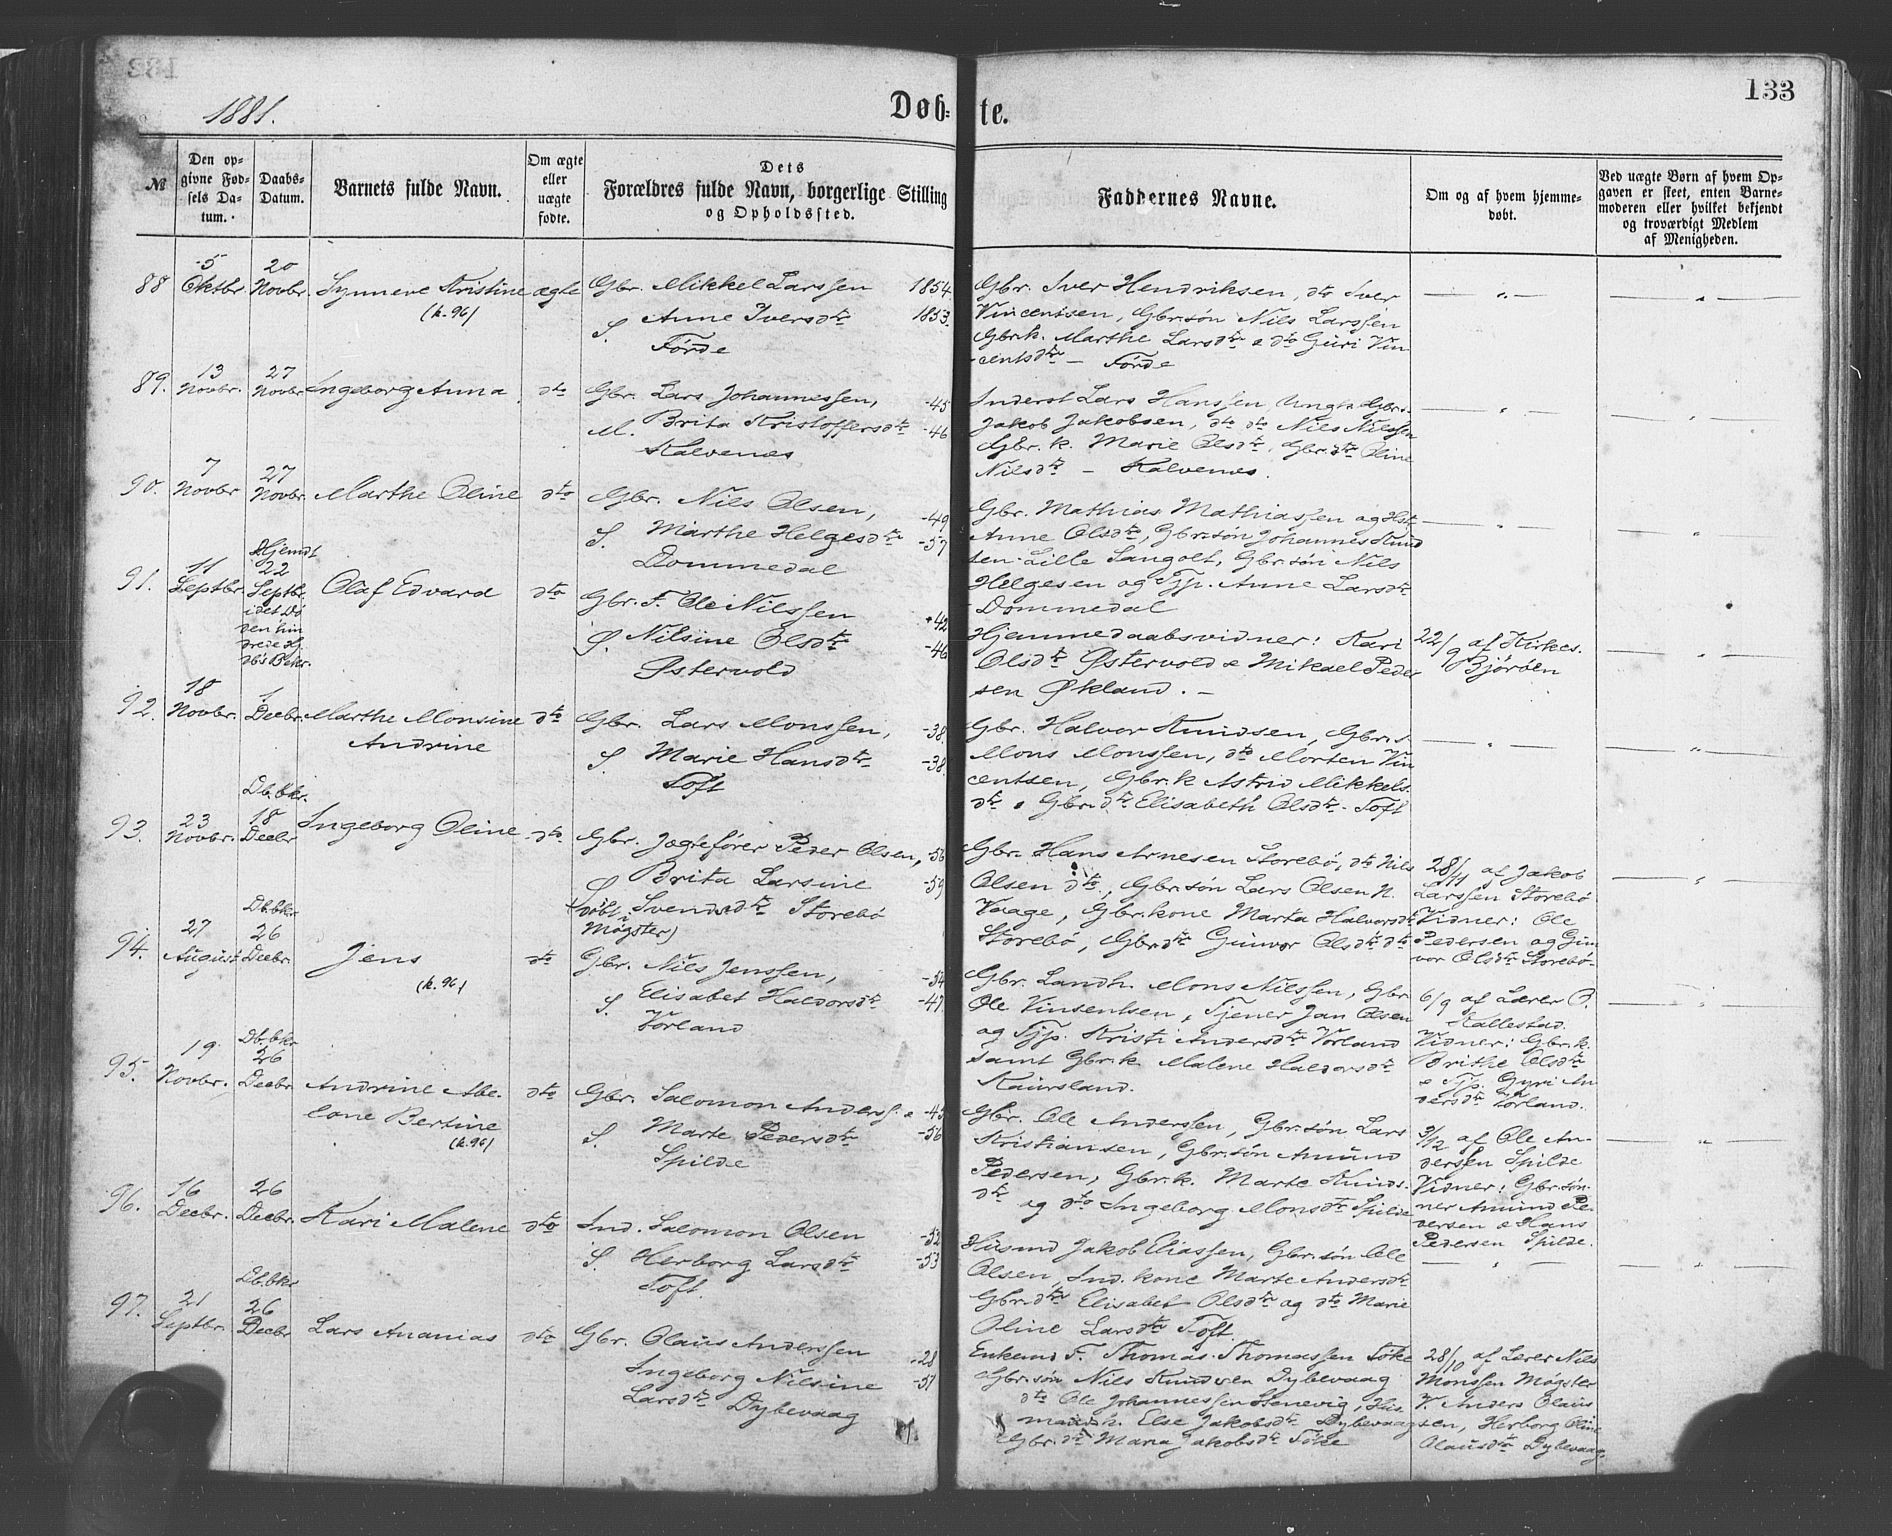 133
1881.
Døb- te.
№
Den opgivne Fødsels Datum.
Daabs-Datum.
Barnets fulde Navn.
Om ægte eller uægte fødte.
Dets Forældres fulde Navn, borgerlige Stilling og Opholdssted.
Faddernes Navne.
Om og af hvem hjemmedøbt.
Ved uægte Børn af hvem Opgaven er skeet, enten Barnemoderen eller hvilket bekjendt og troværdigt Medlem af Menigheden.
88 5 Oktbr 20 Novbr. Synneve Kristine ægte
(k. 96)
Gbr. Mikkel Larssen 1854
S. Anne Iversdtr 1853.
Førde
Gbr. Iver Hendriksen, dto Iver
Vincentsen, Gbr.søn Nils Larssen
Gbr.k. Marthe Larsdtr & dto Guri Vin
centsdtr – Førde
89. 13 Novbr. 27 Novbr Ingeborg Anna dto
Gbr. Lars Johannessen, -45
M. Brita Kristoffersdtr -46
Kalvenæs
Inderst Lars Hanssen, Ungk. Gbr.s.
Jakob Jakobsen, dto dto Nils Nilssen
Gbr.k. Marie Olsdtr, Gbr.dtr Oline
Nilsdtr – Kalvenæs.
90. 7 Novbr 27 Novbr Marthe Oline dto
Gbr. Nils Olsen, -49
S. Marthe Helgesdtr -57
Dommedal
Gbr. Mathias Mathiassen og Hst.
Anne Olsdtr, Gbr.søn Johannes Knud
sen Lille Sangolt, Gbr.søn Nils
Helgesen og Tjp. Anne Larsdtr
Dommedal
91. 11 Septbr. Hjemdt 22 Septbr. Olaf Edvard dto
Gbr. F. Ole Nilssen +42
Nilsine Olsdtr -46
Østervold
Hjemmedaabsvidner: Kari
Olsdtr Østervold & Mikael Peder
sen Økland. –
22/9 af Kirkes.
Bjørøen
92. 18 Novbr. 1 Decbr. Marthe Monsine
Andrine dto
Gbr. Lars Monssen, -38.
S Marie Hansdtr -38
Toft
Gbr. Halvor Knudsen, Gbr.s.
Mons Monssen, dto Morten Vin
centsen, Gbr.k Astrid Mikkels.
dtr & Gbr.dtr Elisabeth Olsdtr. Toft
93. 23 Novbr. Db. bkr. 18 Decbr Ingeborg Oline dto
Gbr. Jægtefører Peder Olsen, -56
Brita Larsine -59
S Svendsdtr Storebø
(døbt i
Møgster)
Gbr. Hans Arnesen Storebø, dto Nils
Olsen dto, Gbr.søn Lars Olsen N.
Vaage, Gbr.kone Marta Halvorsdtr
Storebø, Gbr.dtr Gunvor Olsdtr dto
28/11 af Jakob
Larssen Storebø
Vidner: Ole
Pedersen og Gun
vor Olsdtr Storebø.
94. 27 August Db.bkr 26 Decbr. Jens dto
(k. 96)
Gbr. Nils Jenssen, -54
S. Elisabet Haldorsdtr -47.
Vorland
Gbr. Landh. Mons Nilssen, Gbr
Ole Vinsentsen, Tjener Jan Olsen
og Tjp. Kristi Andersdtr Vorland
samt Gbr.k Malene Haldorsdtr
Kaursland.
6/9 af Lærer P.
Kallestad.
Vidner: Gbr.k.
Brithe Olsdtr
& Tjp. Gyri An
dersdtr Vorland.
95. 19. Novbr. Db. bkr 26 Decbr Andrine Abe-
lone Bertine dto
(k. 96)
Gbr. Salomon Anderss. & -45
S Marte Pedersdtr -56
Spilde
Gbr. Ole Anderssen, Gbr.søn Lars
Kristiansen, Gbr.søn Amund
Pedersen, Gbr.k. Marte Knuds.
dtr og dto Ingeborg Monsdtr Spilde
3/12 af Ole An-
derssen Spilde
Vidner: Gbr.søn-
ner Amund Pe-
dersen & Hans
Pedersen Spilde.
96. 16 Decbr. 26 Decbr. Kari Malene dto
Ind. Salomon Olsen -52
S Herborg Larsdtr -53
Toft.
Husmd Jakob Eliassen, Gbr.søn Ole
Olsen, Ind. kone Marte Andersdtr
Gbr.dtr Elisabet Olsdtr og dto Marie
Oline Larsdtr Toft.
97. 21 Septbr. Db.bkr 26 Decbr Lars Ananias dto
Gbr. Olaus Anderssen -28
Ingeborg Nilsine -57
Larsdtr Dybevaag
Enkemd F. Thomas Thomassen Tøke
Gbr.søn Nils Knudsen Dybevaag
dto Ole Johannessen Stenevig, Hus
mandsk. Else Jakobsdtr Dybevaag
Gbr.dtr Maria Jakobsdtr Tøke
28/10 af Lærer Nils
Monssen Møgster
V. Anders Olaus
sen, Herborg Oline
Olausdtr Dybevaag.